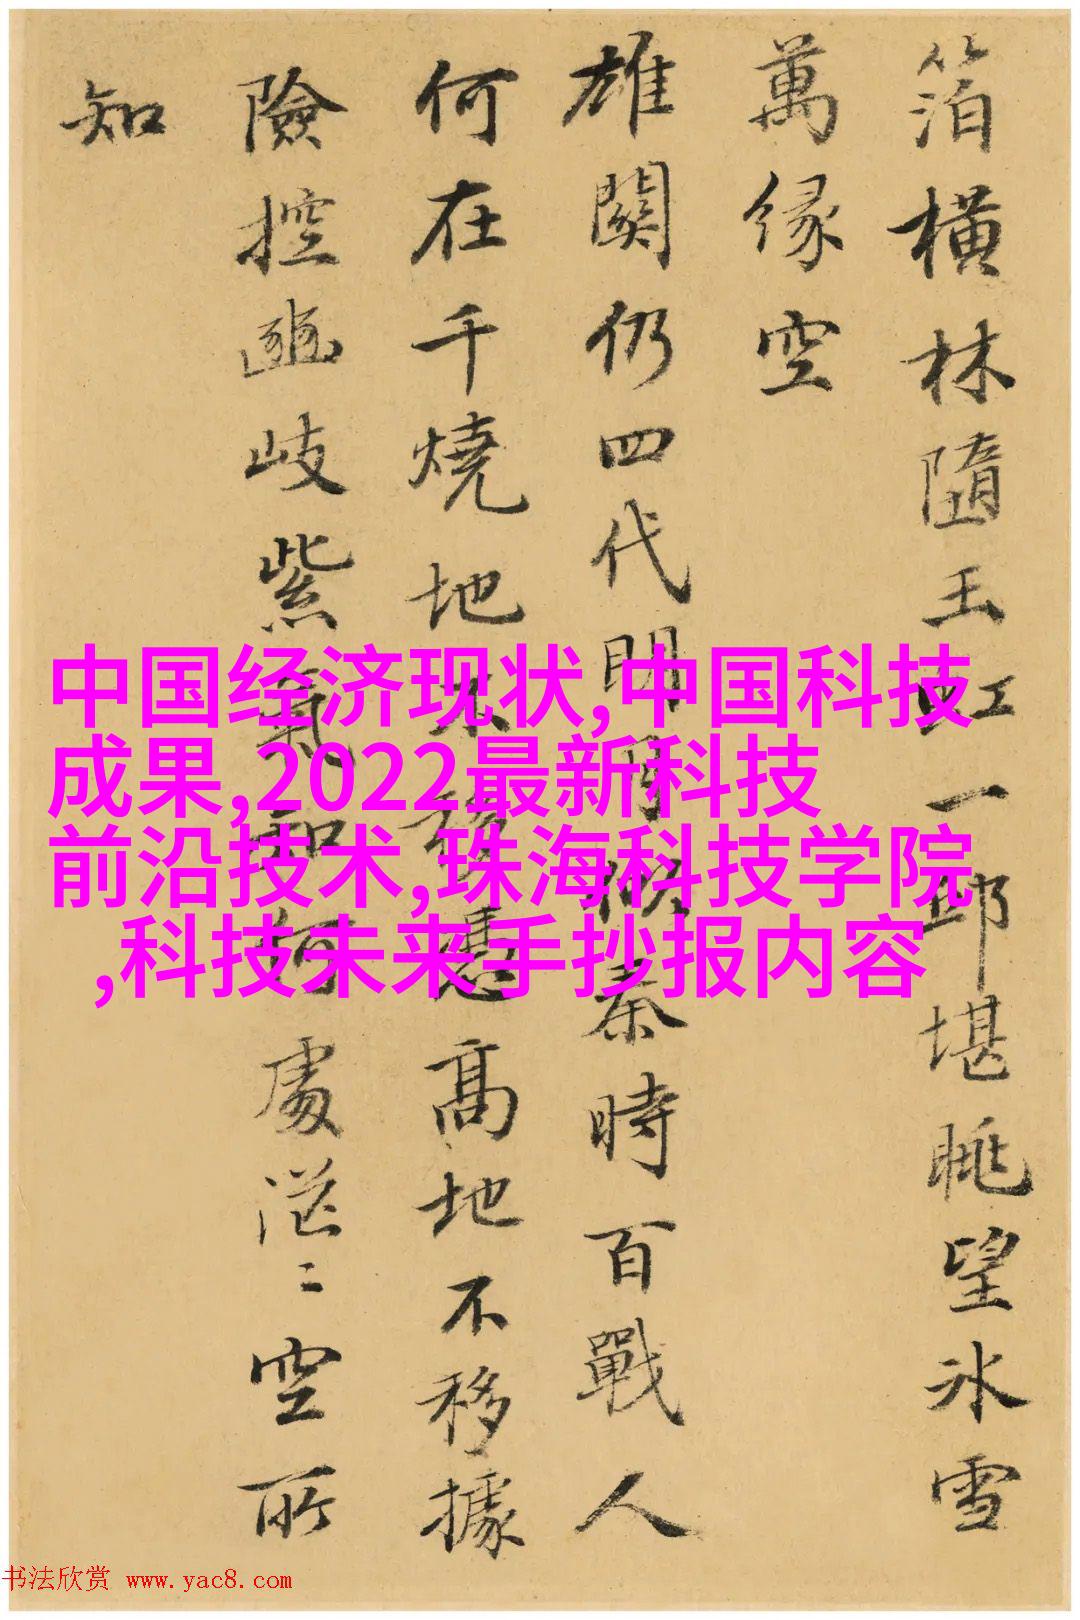 箔橫林隨玉虹一邱堪眺望冰雪
萬緣空
雄關仍四代明月似秦時百戰人
何在千燒地不
憑高地不移據
險控豳岐紫氣知何處茫〻空所
知
中国经济现状,中国科技
成果,2022最新科技
前沿技术,珠海科技学院
,科技未来手抄报内容
书法欣赏 www.yac8.com